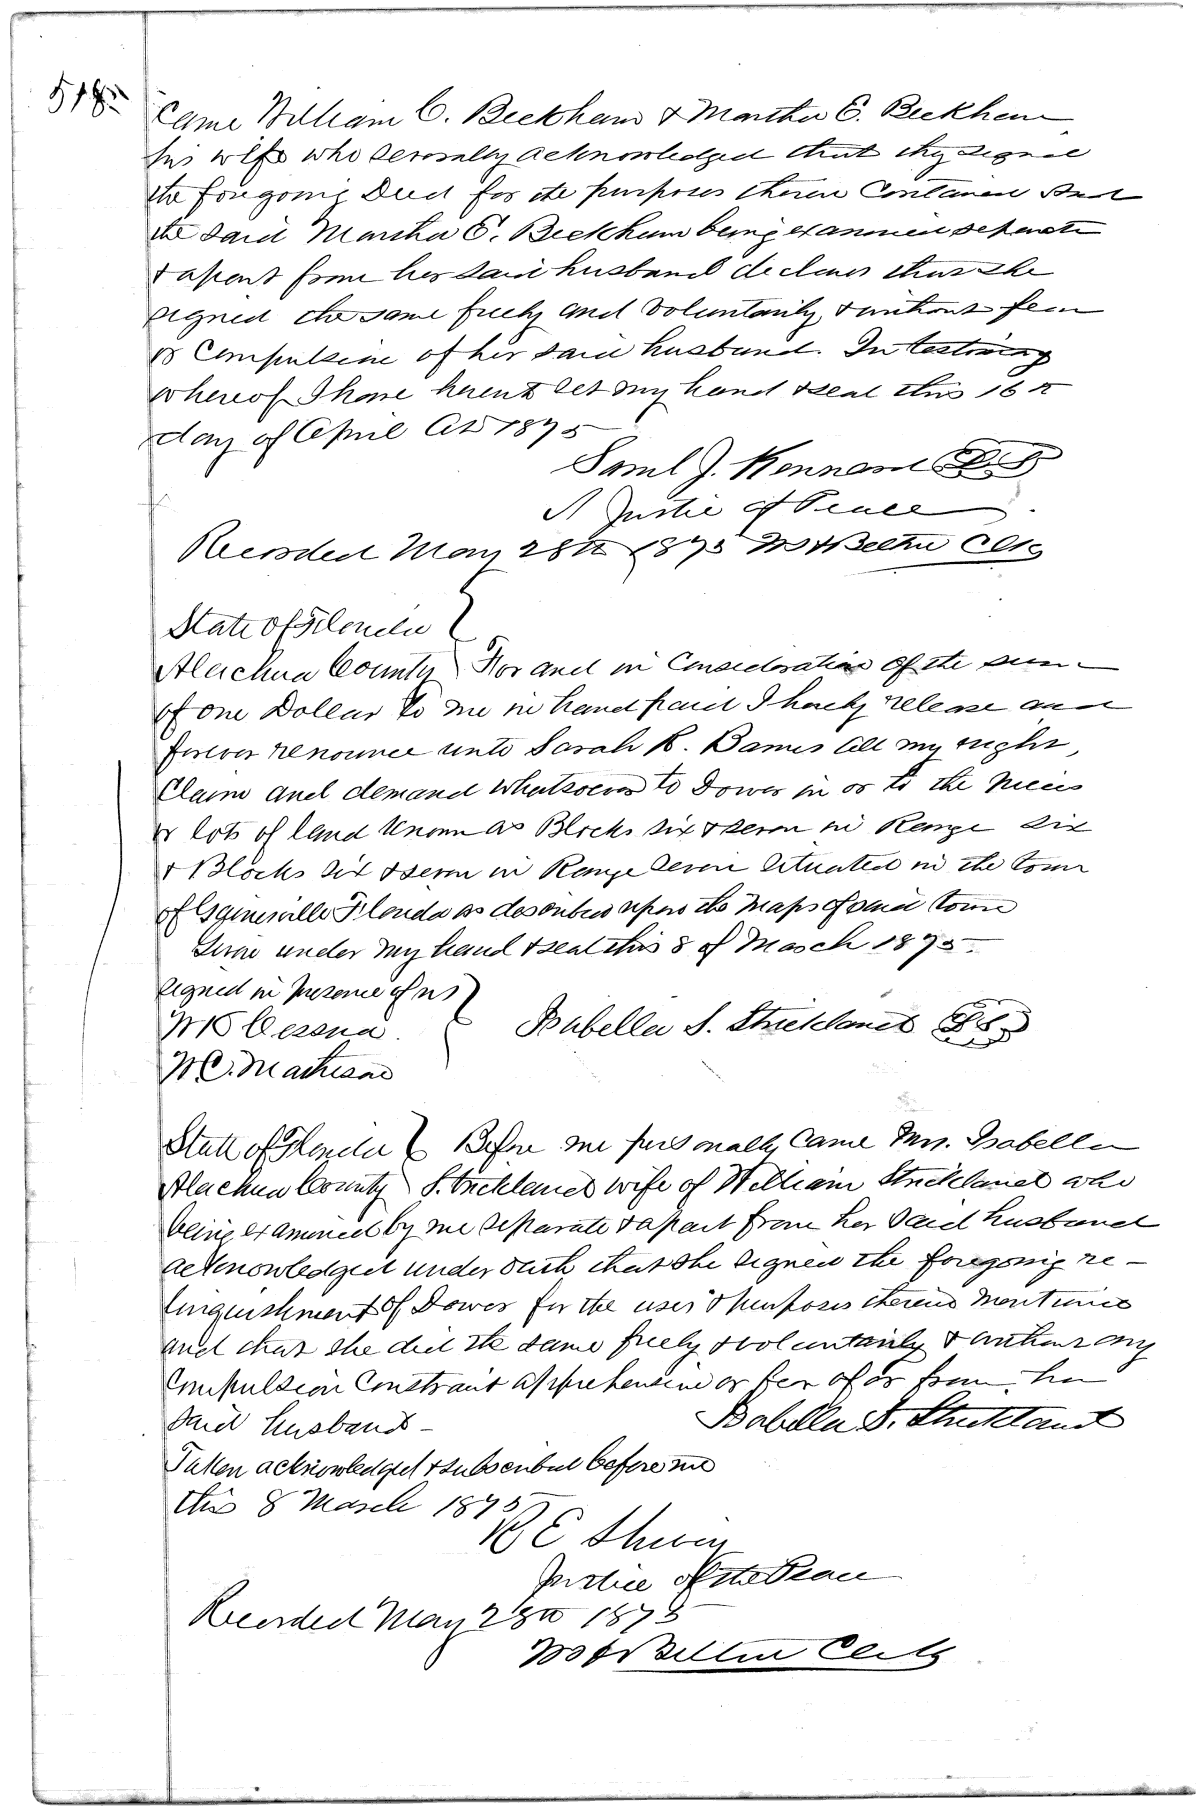 518
Came William C. Beckham & Martha E. Beckham
his wife who severally acknowledged that they signed
the foregoing Deed for the purposes therein Contained And
the said Martha E. Beckham being examined separate
& apart from her said husband declares that she
signed the same freely and voluntarily & without fear
or Compulsion of her said husband. In testimony
whereof I have hereunto set my hand & seal this 16th
day of April AD 1875
Saml J. Kennard LS
A Justice of Peace
Recorded May 28th 1875 Clk
State of Florida
Alachua County For and in Consideration of the sum
of one Dollar to me in hand paid I hereby release and
forever renounce unto Sarah R. Barnes all my right,
Claim and demand whatsoever to Dower in or to the pieces
or lots of land known as Blocks six & seven in Range six
& Blocks six & seven in Range seven situated in the town
of Gainesville Florida as described upon the maps of said town
Given under my hand & seal this 8 of March 1875.
signed in presence of us
W K Cessna
Isabella S. Strickland LS
W.C. Matheson
State of Florida Before me personally Came Mrs. Isabella
Alachua County S. Strickland wife of William Strickland who
being examined by me separate & apart from her said husband
acknowledged under oath that she signed the foregoing re-
linquishment of Dower for the uses & purposes therein mentioned
and that she did the same freely & voluntarily & without any
Compulsion Constraint apprehension or fear of or from her
said husband -
Isabella S. Strickland
Taken acknowledged & subscribed before me
this 8 March 1875
Justice of the Peace
Recorded May 28th 1875
Clerk